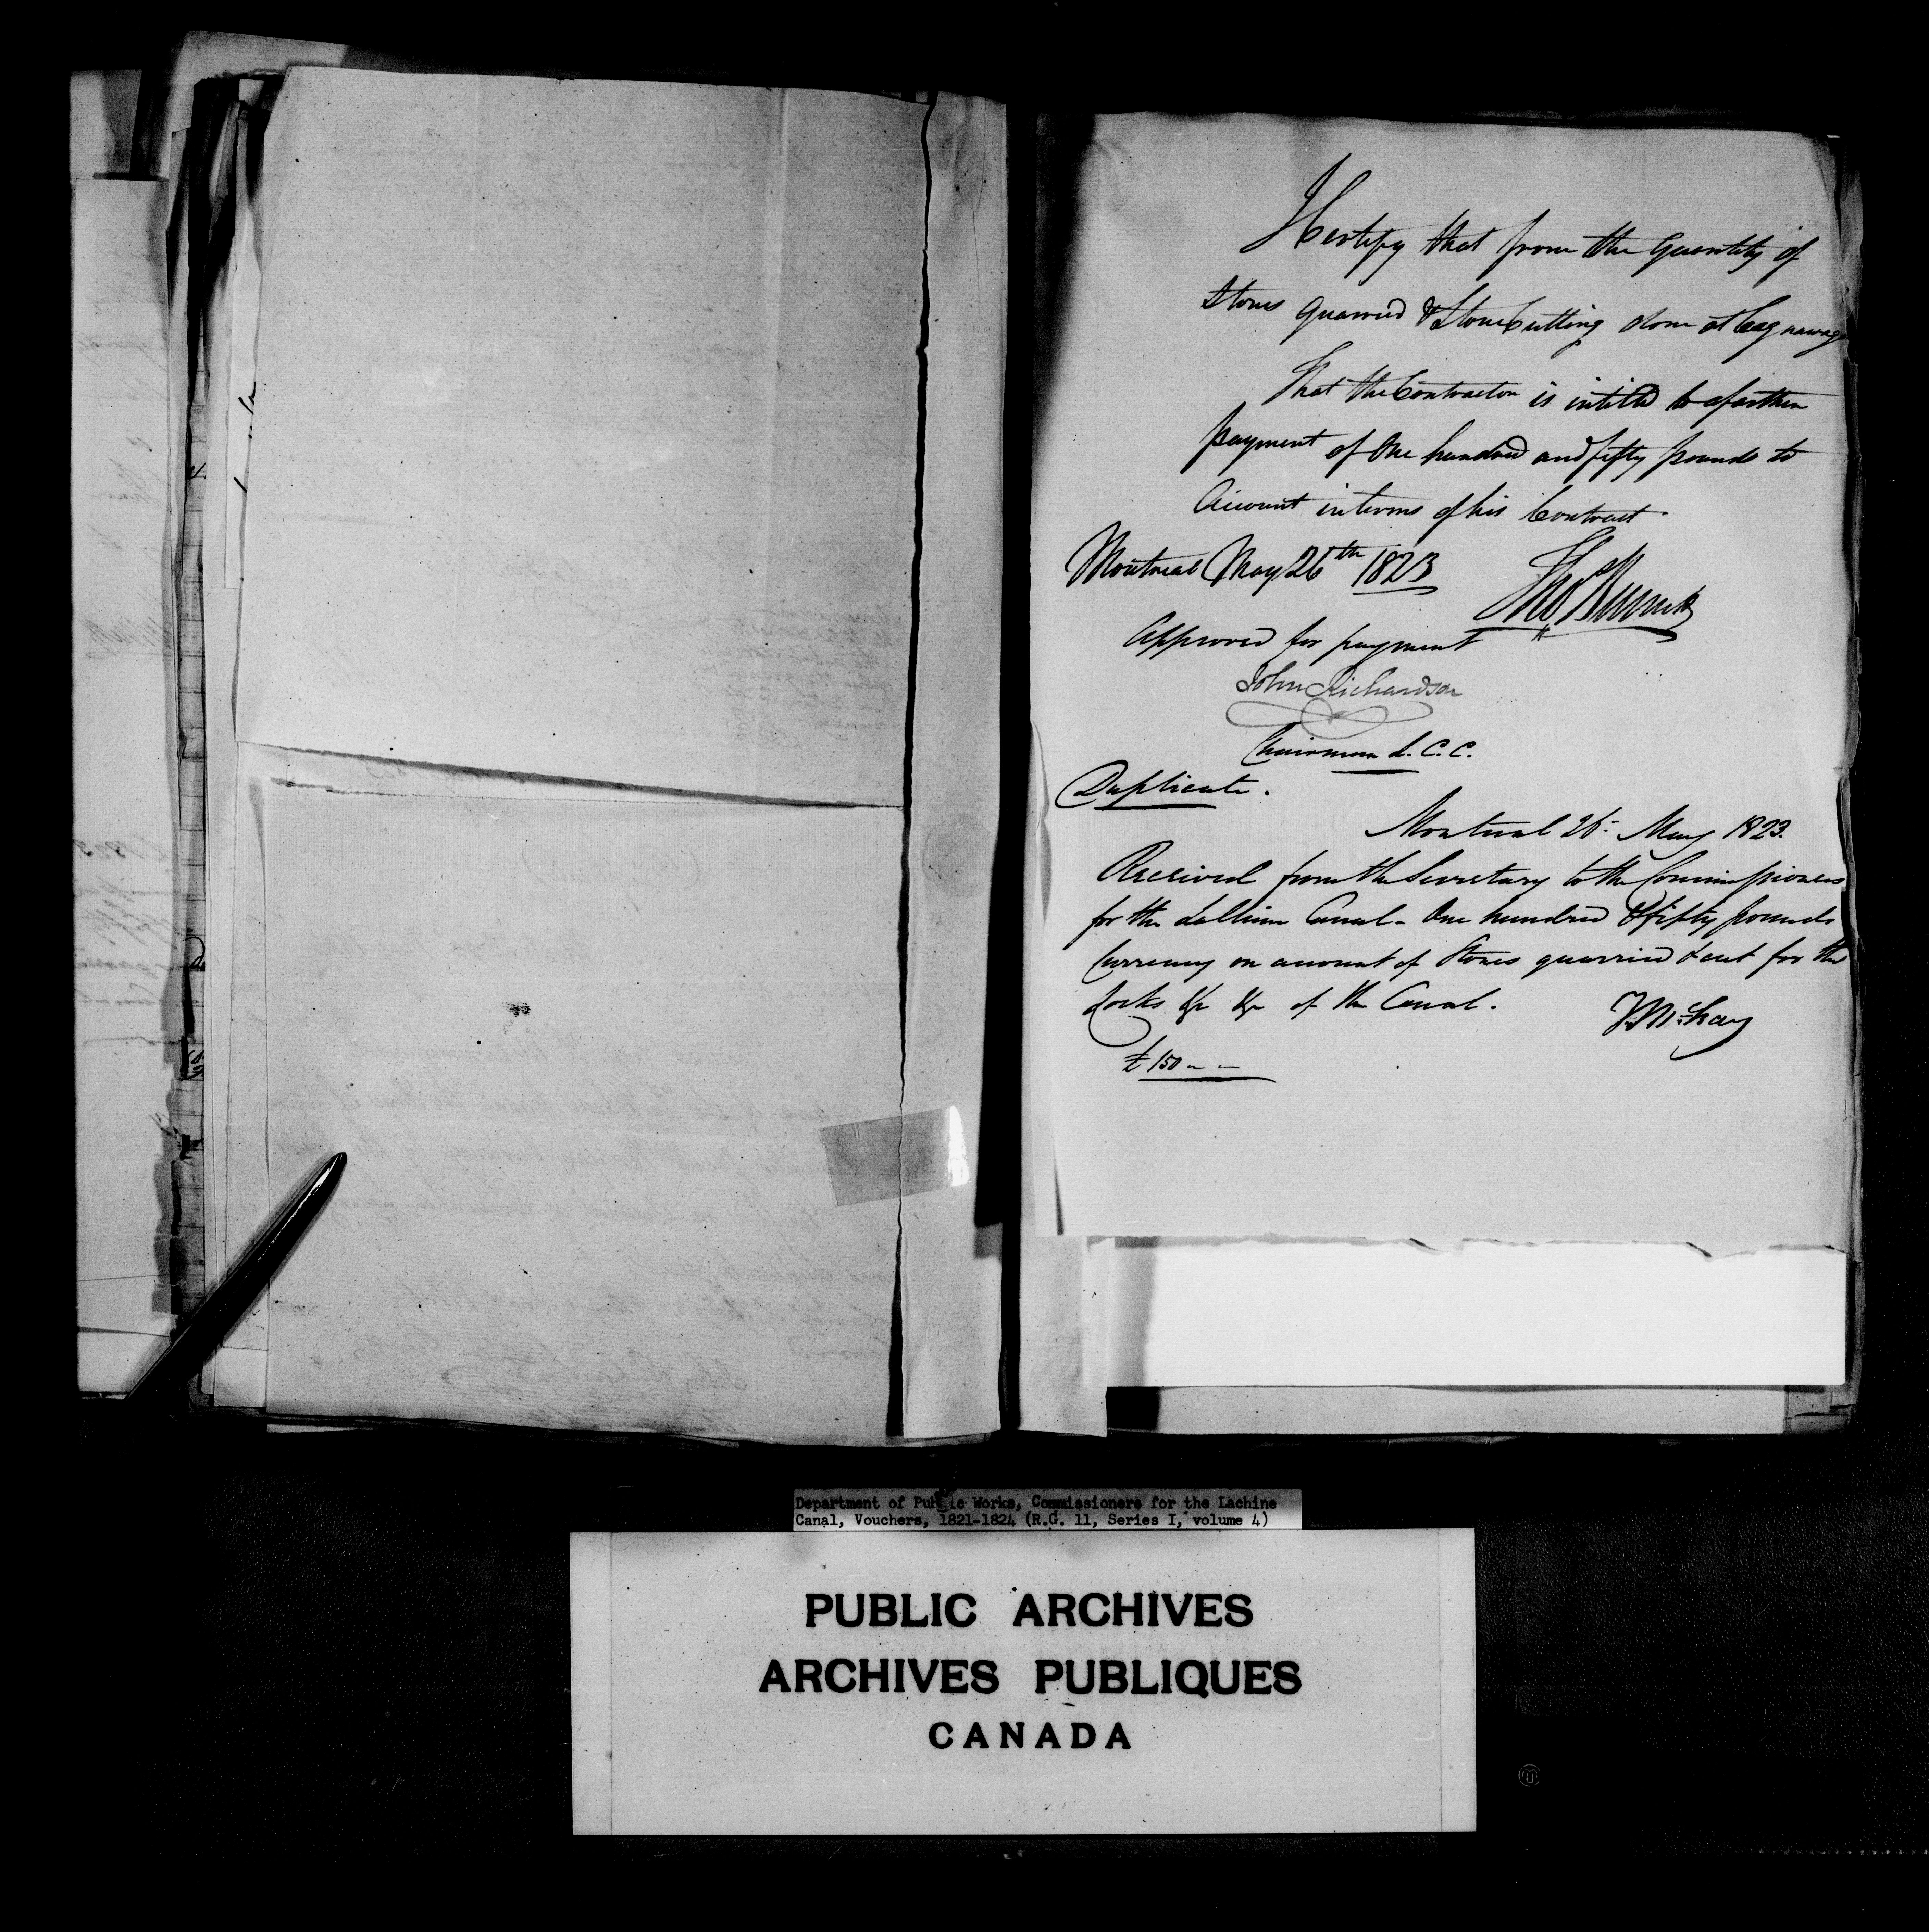 I Certify that from the Quantity of
Stones quarried & Stone Cutting done at Cagnawaga
That the Contractor is intitled to a farther
payment of One hundred and fifty pounds to
Account in terms of his Contract.
Montreal May 26th 1823
Thos Burnett
Approved for payment
John Richardson
Chairman L. C. C.
Duplicate.
Montreal 26: May 1823.
Received from the Secretary to the Commissioners
for the La Chine Canal - One hundred & fifty pounds
Currency on account of Stones quarried & cut for the
Locks &c &c of the Canal.
T. McKay
£ 150 " "
Department of Public Works, Commissioners for the Lachine
Canal, Vouchers, 1821-1824 (R.G. 11, Series I, volume 4)
PUBLIC ARCHIVES
ARCHIVES PUBLIQUES
CANADA